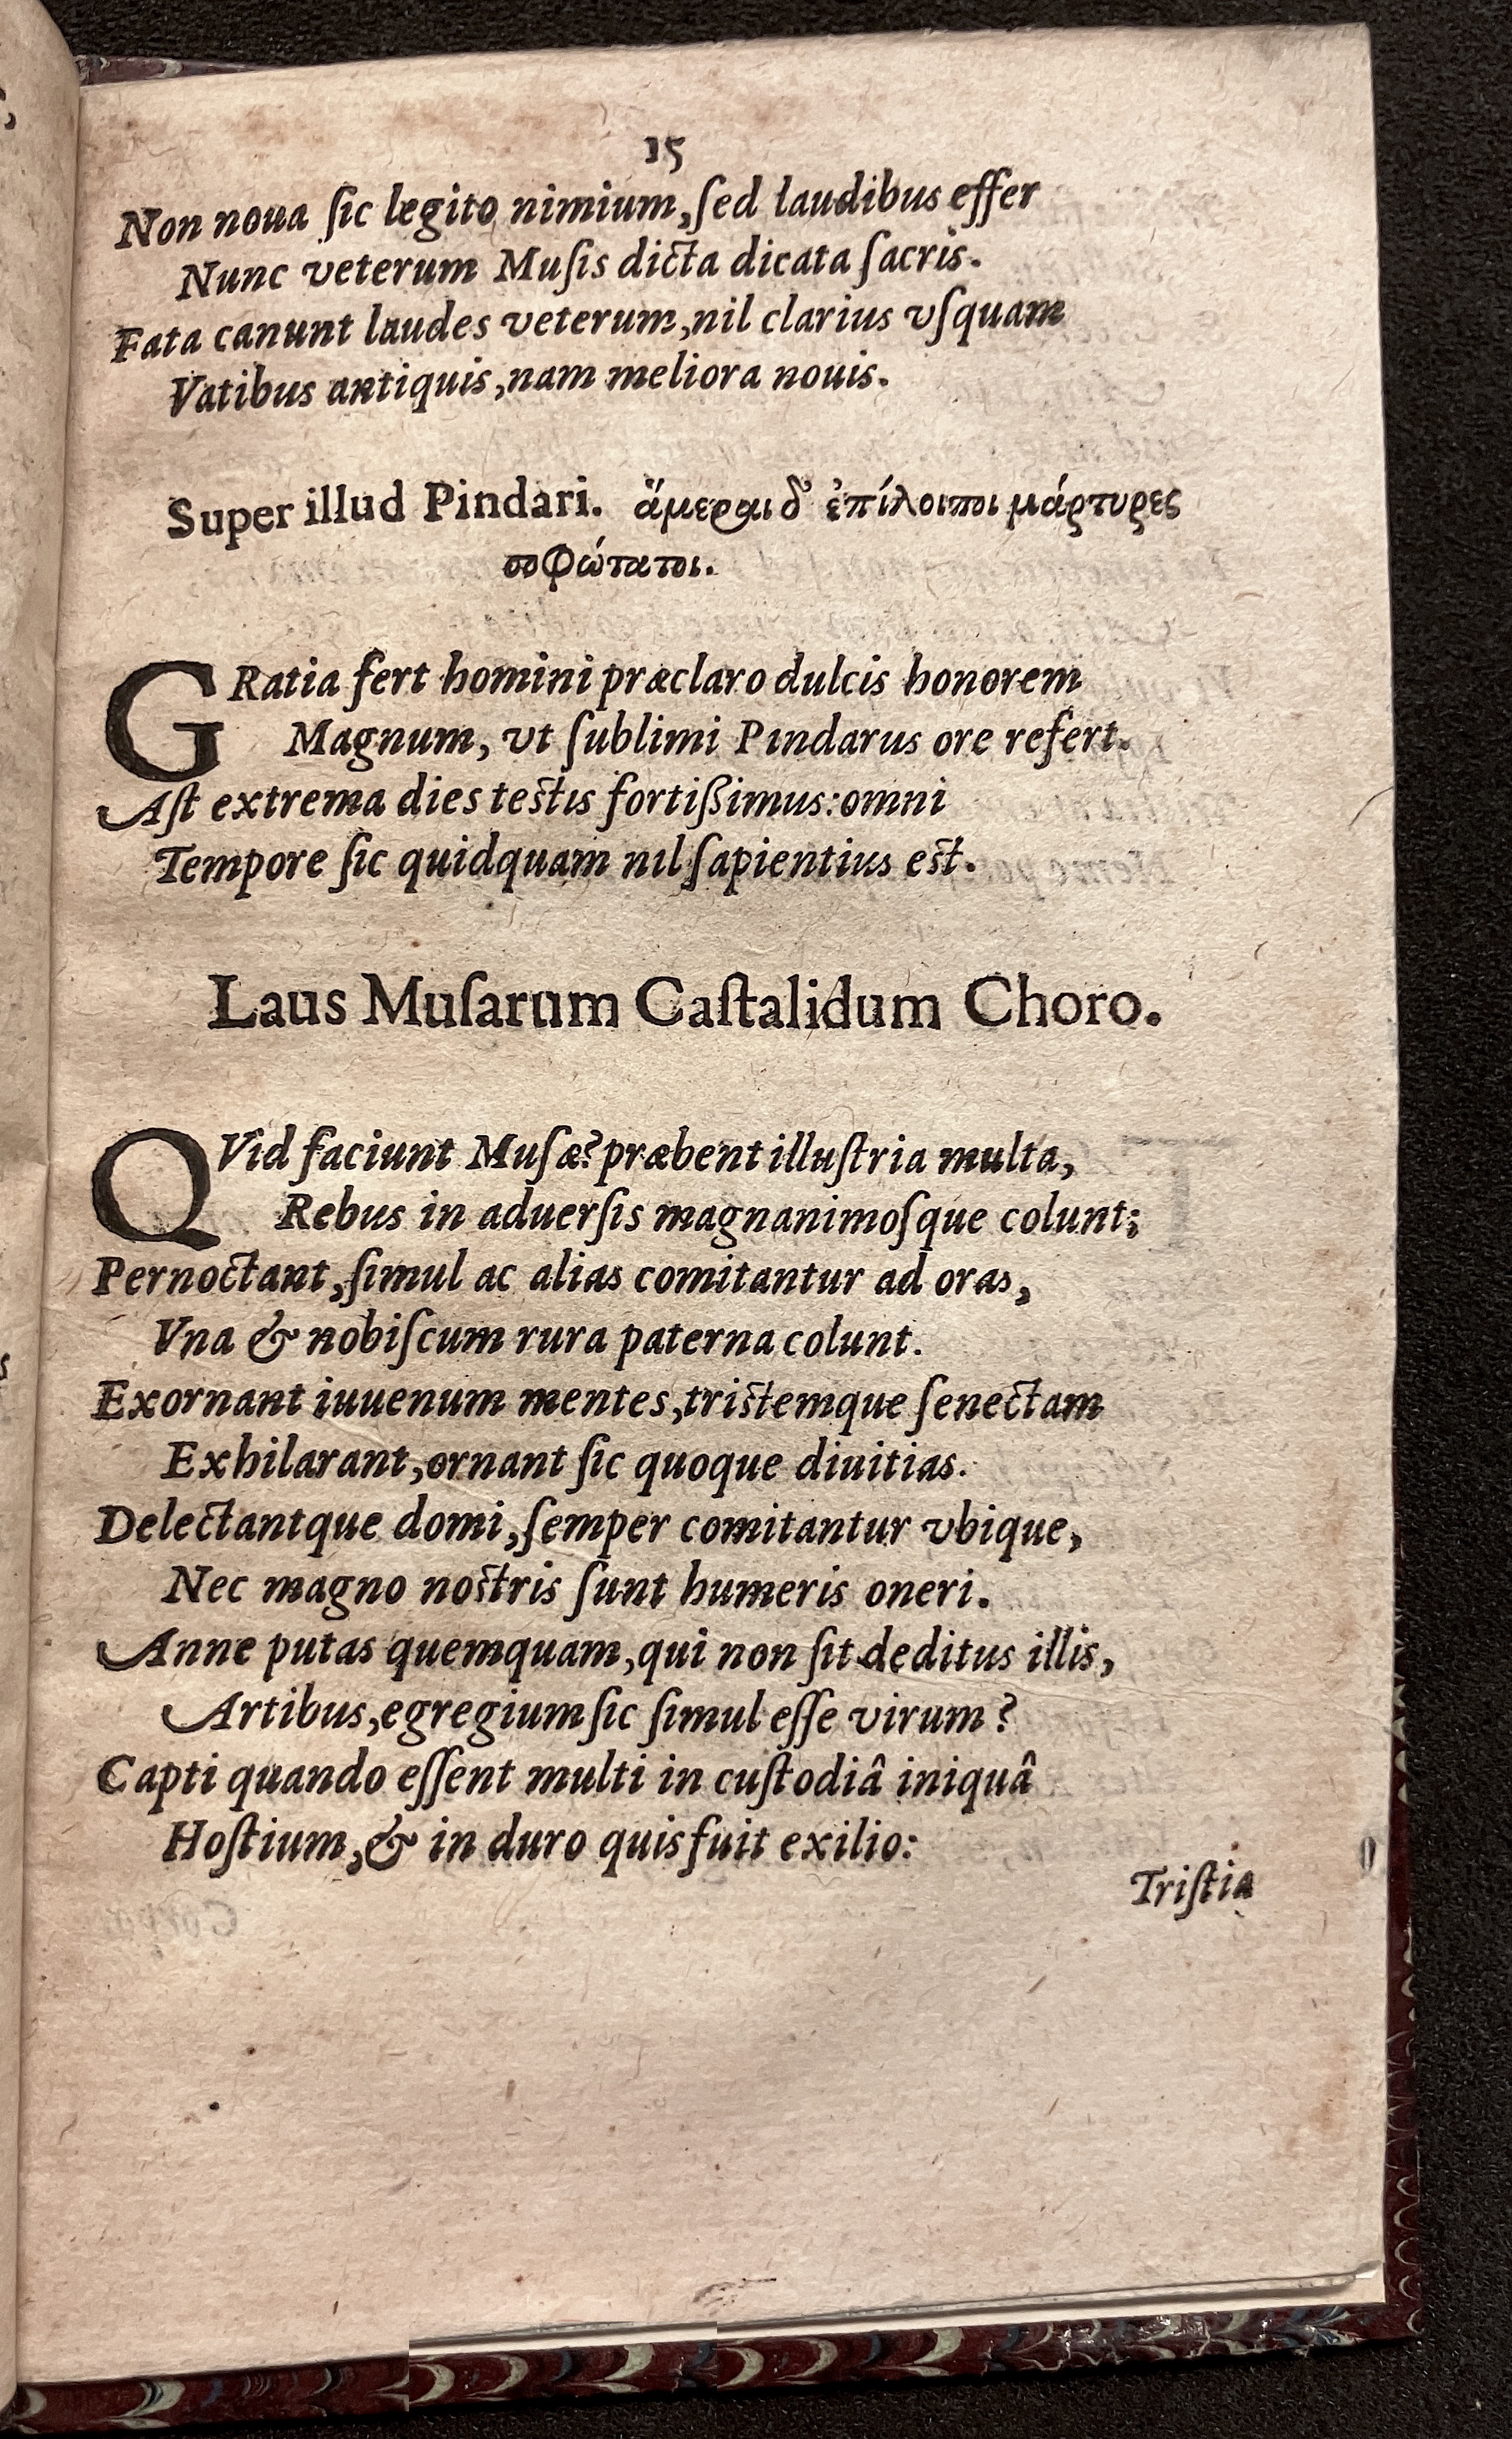 15
Non noua ſic legito nimium, ſed laudibus effer
Nunc veterum Muſis dicta dicata ſacris.
Fata canunt laudes veterum, nil clarius vſquam
Vatibus antiquis, nam meliora nouis.
Super illud Pindari. ἅμεραι δ' ἐπίλοιποι μάρτυρες
σοφώτατοι.
GRatia fert homini præclaro dulcis honorem
Magnum, vt ſublimi Pindarus ore refert.
Aſt extrema dies testis fortißimus: omni
Tempore ſic quidquam nil ſapientius est.
Laus Muſarum Caſtalidum Choro.
QVid faciunt Muſæ? præbent illuſtria multa,
Rebus in aduerſis magnanimoſque colunt;
Pernoctant, ſimul ac alias comitantur ad oras,
Vna & nobiſcum rura paterna colunt.
Exornant iuuenum mentes, tristemque ſenectam
Exhilarant, ornant ſic quoque diuitias.
Delectantque domi, ſemper comitantur vbique,
Nec magno nostris ſunt humeris oneri.
Anne putas quemquam, qui non ſit deditus illis,
Artibus, egregium ſic ſimul eſſe virum?
Capti quando eſſent multi in cuſtodiâ iniquâ
Hoſtium, & in duro quis fuit exilio:
Triſtia